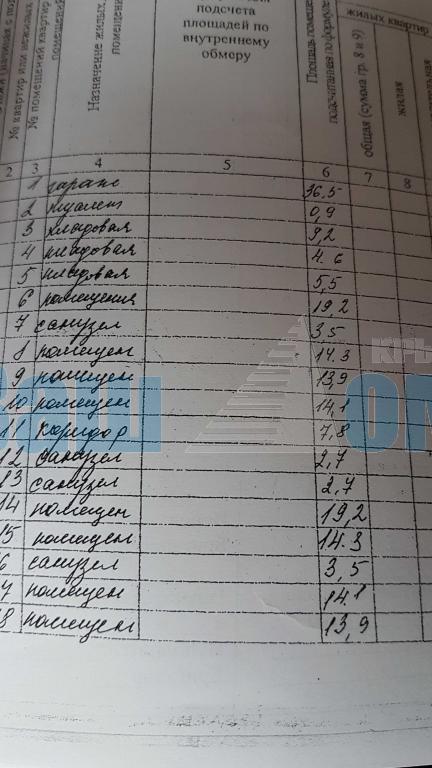 подсчета
площадей по
внутреннему
обмеру
№ квартир или нежилых
№ помещений квартир
Назначение жилых,
Площадь помеще
подсчитанная по формуле
жилых квартир
общая (сумма гр. 8 и 9)
жилая
2 3 4 5 6 7 8
1 гараж 36,5
2 туалет 0,9
3 кладовая 9,2
4 кладовая 4.6
5 кладовая 5,5
6 помещения 19.2
7 санузел 3.5
8 помещен 14.3
9 помещен 13,9
10 помещен 14,1
11 коридор 7,8
12 санузел 2,7
13 санузел 2,7
14 помещен 19,2
15 помещен 14.3
6 санузел 3,5
7 помещен 14.1
8 помещен 13,9
КРЫ